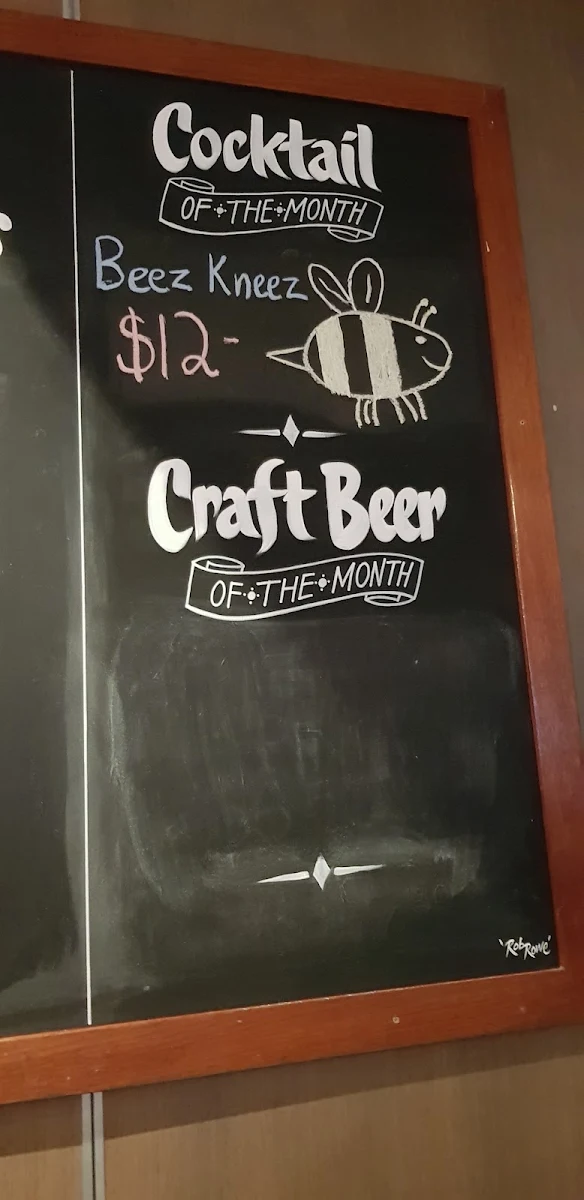 Cocktail
OF·THE·MONTH
Beez Kneez
$12-
Craft Beer
OF·THE·MONTH
'Rob Rowe'